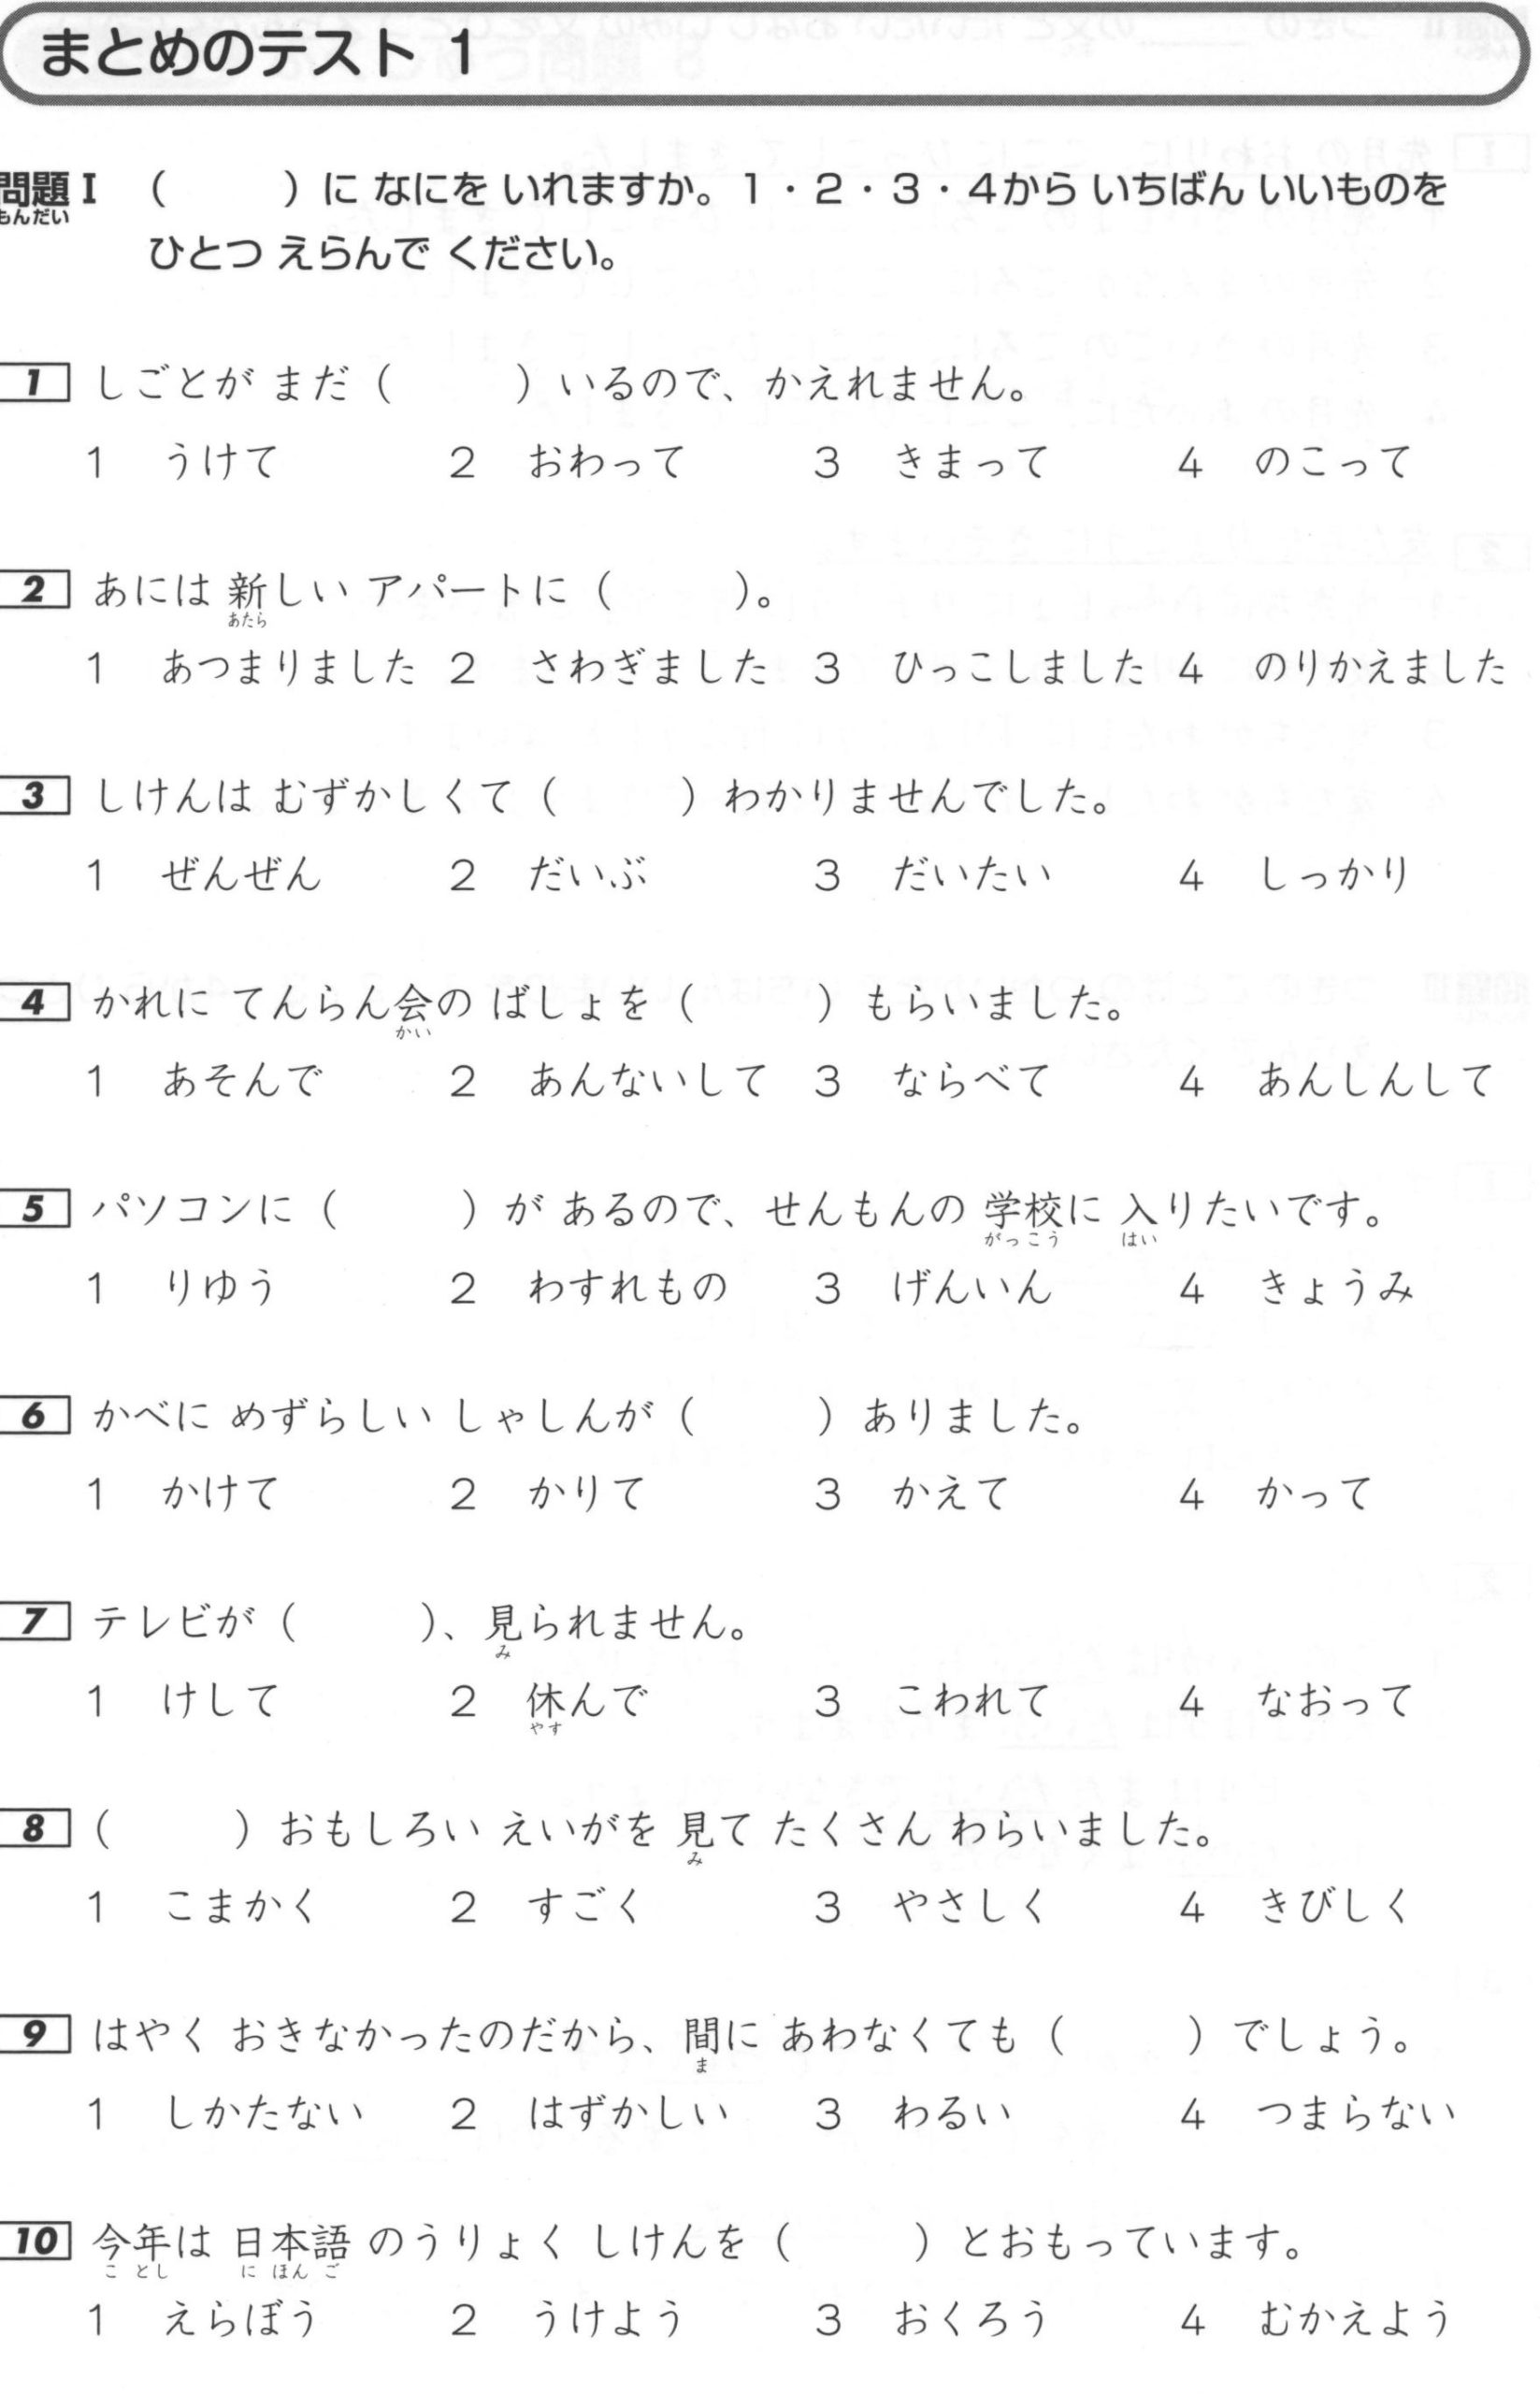 まとめのテスト 1
問題Ⅰ （　　　）に なにを いれますか。1・2・3・4から いちばん いいものを
もんだい
ひとつ えらんで ください。
1 しごとが まだ（　　　）いるので、かえれません。
1 うけて 2 おわって 3 きまって 4 のこって
2 あには 新しい アパートに（　　　）。
あたら
1 あつまりました 2 さわぎました 3 ひっこしました 4 のりかえました
3 しけんは むずかしくて（　　　）わかりませんでした。
1 ぜんぜん 2 だいぶ 3 だいたい 4 しっかり
4 かれに てんらん会の ばしょを（　　　）もらいました。
かい
1 あそんで 2 あんないして 3 ならべて 4 あんしんして
5 パソコンに（　　　）が あるので、せんもんの 学校に 入りたいです。
がっこう はい
1 りゆう 2 わすれもの 3 げんいん 4 きょうみ
6 かべに めずらしい しゃしんが（　　　）ありました。
1 かけて 2 かりて 3 かえて 4 かって
7 テレビが（　　　）、見られません。
み
1 けして 2 休んで 3 こわれて 4 なおって
やす
8 （　　　）おもしろい えいがを 見て たくさん わらいました。
み
1 こまかく 2 すごく 3 やさしく 4 きびしく
9 はやく おきなかったのだから、間に あわなくても（　　　）でしょう。
ま
1 しかたない 2 はずかしい 3 わるい 4 つまらない
10 今年は 日本語 のうりょく しけんを（　　　）とおもっています。
こ とし に ほん ご
1 えらぼう 2 うけよう 3 おくろう 4 むかえよう